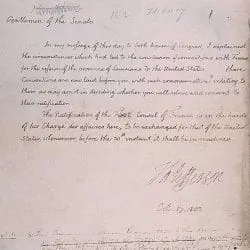 Gentlemen of the Senate
In my message of this day to both houses of Congress, I explained
the circumstances which had led to the conclusion of conventions with France
for the cession of the province of Louisiana to the United States. those
Conventions are now laid before you, with such communications relating to
them as may assist in deciding whether you will advise and consent to
their ratification.
The ratification of the First Consul of France is in the hands
of his Chargé des affaires here, to be exchanged for that of the United
States, whensoever, before the 30th instant, it shall be in readiness.
Th Jefferson
Oct. 17. 1803